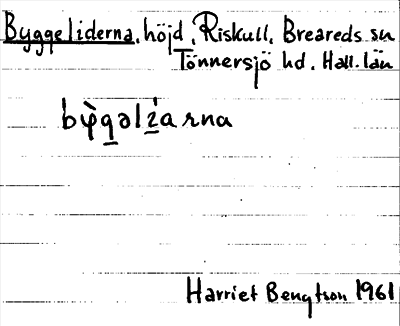 Byggeliderna, höjd, Riskull, Breareds sn
Tönnersjö hd. Hall. län
Harriet Bengtson 1961